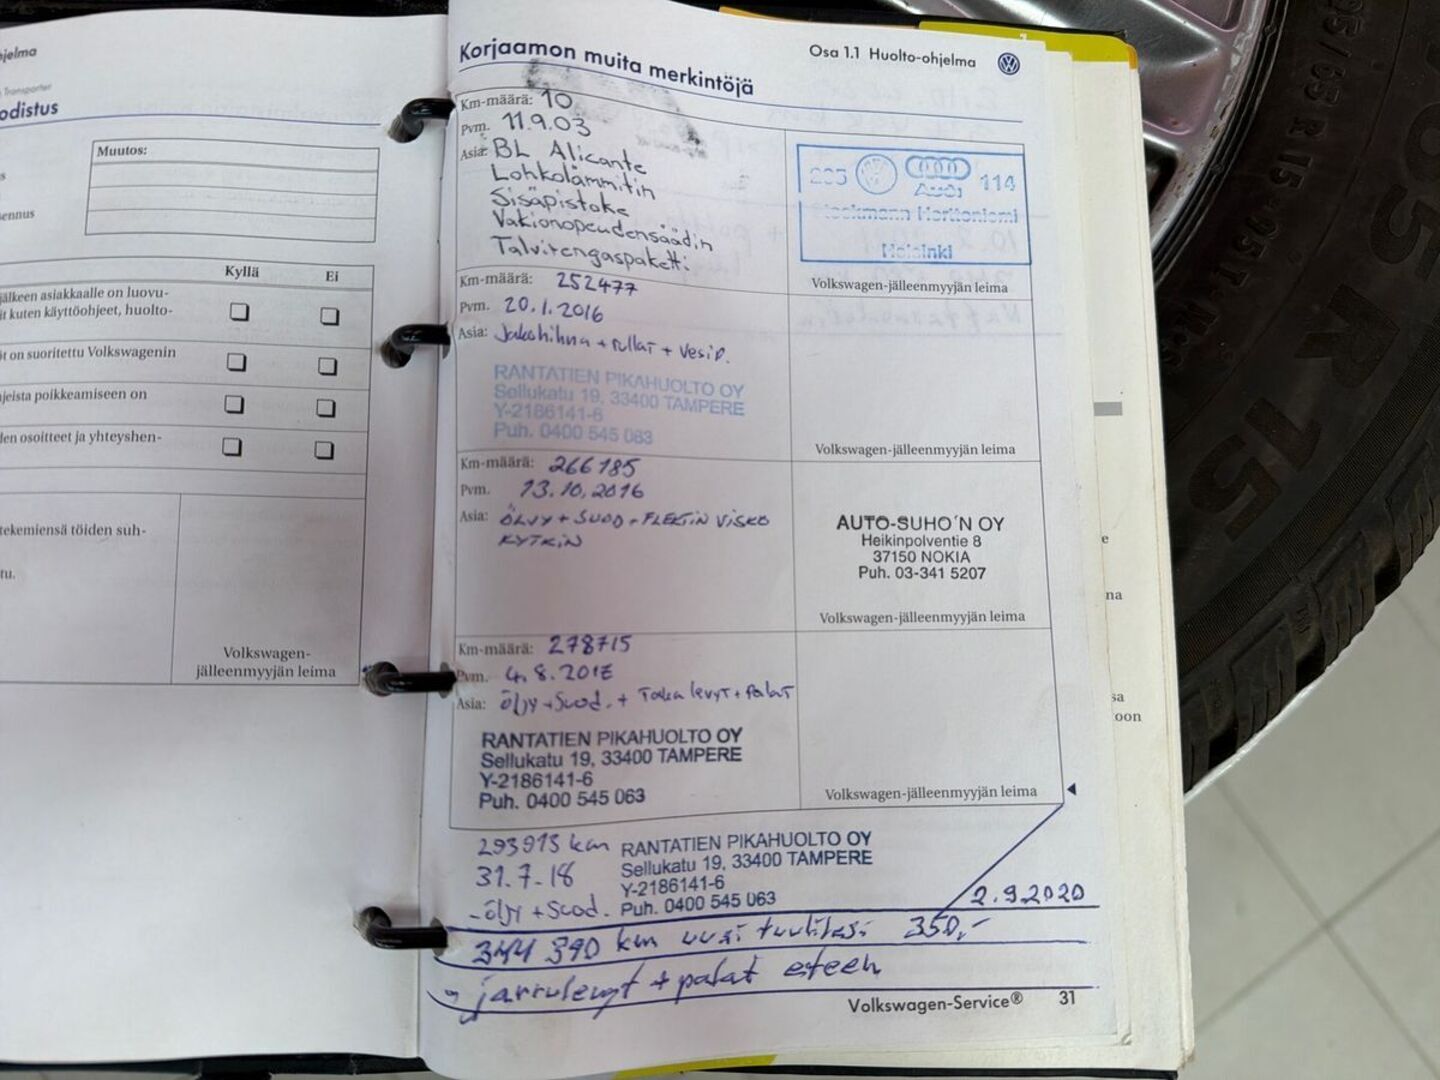 jelma
Transporter
odistus
Muutos:
s
ennus
Kyllä Ei
jälkeen asiakkaalle on luovu-
it kuten käyttöohjeet, huolto-
öt on suoritettu Volkswagenin
jeista poikkeamiseen on
den osoitteet ja yhteyshen-
tekemiensä töiden suh-
tu.
Volkswagen-
jälleenmyyjän leima
Korjaamon muita merkintöjä
Osa 1.1 Huolto-ohjelma
Km-määrä: 10
Pvm. 11.9.03
Asia: BL Alicante
Lohkolämmitin
Sisäpistoke
Vakionopeudensäädin
Talvirengaspaketti
Audi 114
Stockmann Herttoniemi
Helsinki
Volkswagen-jälleenmyyjän leima
Km-määrä: 252477
Pvm. 20.1.2016
Asia: Jakohihna + rullat + vesip.
RANTATIEN PIKAHUOLTO OY
Sellukatu 19, 33400 TAMPERE
Y-2186141-6
Puh. 0400 545 063
Volkswagen-jälleenmyyjän leima
Km-määrä: 266185
Pvm. 13.10.2016
Asia: ÖLJY + SUOD + FLEKTIN VISKO
KYTKIN
AUTO-SUHO´N OY
Heikinpolventie 8
37150 NOKIA
Puh. 03-341 5207
Volkswagen-jälleenmyyjän leima
Km-määrä: 278715
Pvm. 4.8.2017
Asia: öljy + suod. + Taka levyt + palat
RANTATIEN PIKAHUOLTO OY
Sellukatu 19, 33400 TAMPERE
Y-2186141-6
Puh. 0400 545 063
Volkswagen-jälleenmyyjän leima
293913 km
31.7.18
- öljy + suod.
RANTATIEN PIKAHUOLTO OY
Sellukatu 19, 33400 TAMPERE
Y-2186141-6
Puh. 0400 545 063
2.9.2020
344 390 km uusi tuulilasi 350,-
jarrulevyt + palat eteen
Volkswagen-Service® 31
e
na
sa
oon
R 15